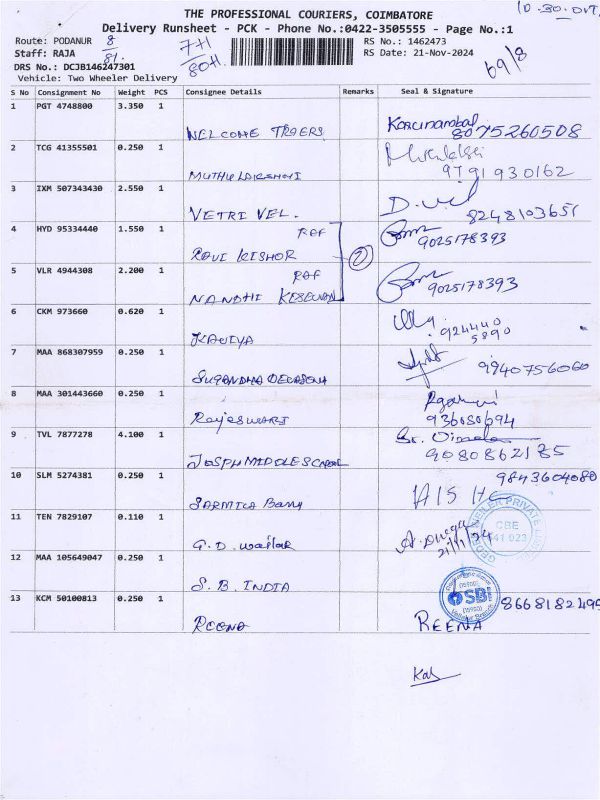 THE PROFESSIONAL COURIERS, COIMBATORE
Delivery Runsheet - PCK - Phone No.:0422-3505555 - Page No.:1
10-30-
Route: PODANUR
8
81
7+1
80+1
RS No.: 1462473
69/8
Staff: RAJA
RS Date: 21-Nov-2024
DRS No.: DCJB146247301
Vehicle: Two Wheeler Delivery
S No Consignment No Weight PCS Consignee Details Remarks Seal & Signature
1 PGT 4748800 3.350 1
WELCOME 8075260508
2 TCG 41355501 0.250 1
MUTHU LAKSHMI 9791930162
3 IXM 507343430 2.550 1
VETRI VEL. D. 8248103651
4 HYD 95334440 1.550 1 REF
RAVI KISHOR 2 9025178393
5 VLR 4944308 2.200 1 REF
NANDHI KESEVAN 9025178393
6 CKM 973660 0.620 1
KAVIYA 924440
5890
7 MAA 868307959 0.250 1
SUGANDHA 9940756060
8 MAA 301443660 0.250 1
Rajeswari 936080694
9 TVL 7877278 4.100 1
JOSPH MIDDLE SCHOOL 9080862185
10 SLM 5274381 0.250 1 9843604080
SARMILA BANU
11 TEN 7829107 0.110 1
G.D. 21/11/24
CBE
641 023
PRIVATE
12 MAA 105649047 0.250 1
S.B. INDIA
SBI
13 KCM 50100813 0.250 1 8668182495
REENA REENA